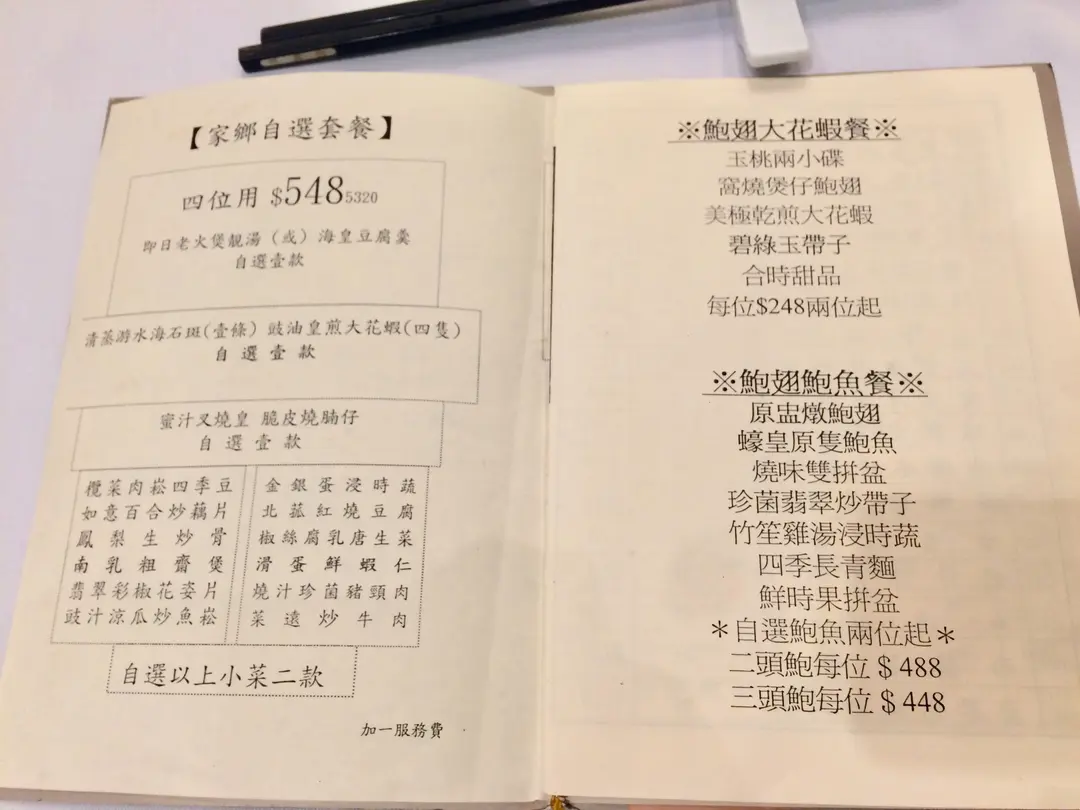 【家鄉自選套餐】
四位用 $548 5320
即日老火煲靚湯（或）海皇豆腐羹
自選壹款
清蒸游水海石斑(壹條) 豉油皇煎大花蝦(四隻)
自選壹款
蜜汁叉燒皇 脆皮燒腩仔
自選壹款
欖菜肉崧四季豆
如意百合炒藕片
鳳梨生炒骨
南乳粗齋煲
翡翠彩椒花姿片
豉汁涼瓜炒魚崧
金銀蛋浸時蔬
北菰紅燒豆腐
椒絲腐乳唐生菜
滑蛋鮮蝦仁
燒汁珍菌豬頸肉
菜遠炒牛肉
自選以上小菜二款
加一服務費
※鮑翅大花蝦餐※
玉桃兩小碟
窩燒煲仔鮑翅
美極乾煎大花蝦
碧綠玉帶子
合時甜品
每位$248兩位起
※鮑翅鮑魚餐※
原盅燉鮑翅
蠔皇原隻鮑魚
燒味雙拼盆
珍菌翡翠炒帶子
竹笙雞湯浸時蔬
四季長青麵
鮮時果拼盆
＊自選鮑魚兩位起＊
二頭鮑每位＄488
三頭鮑每位＄448